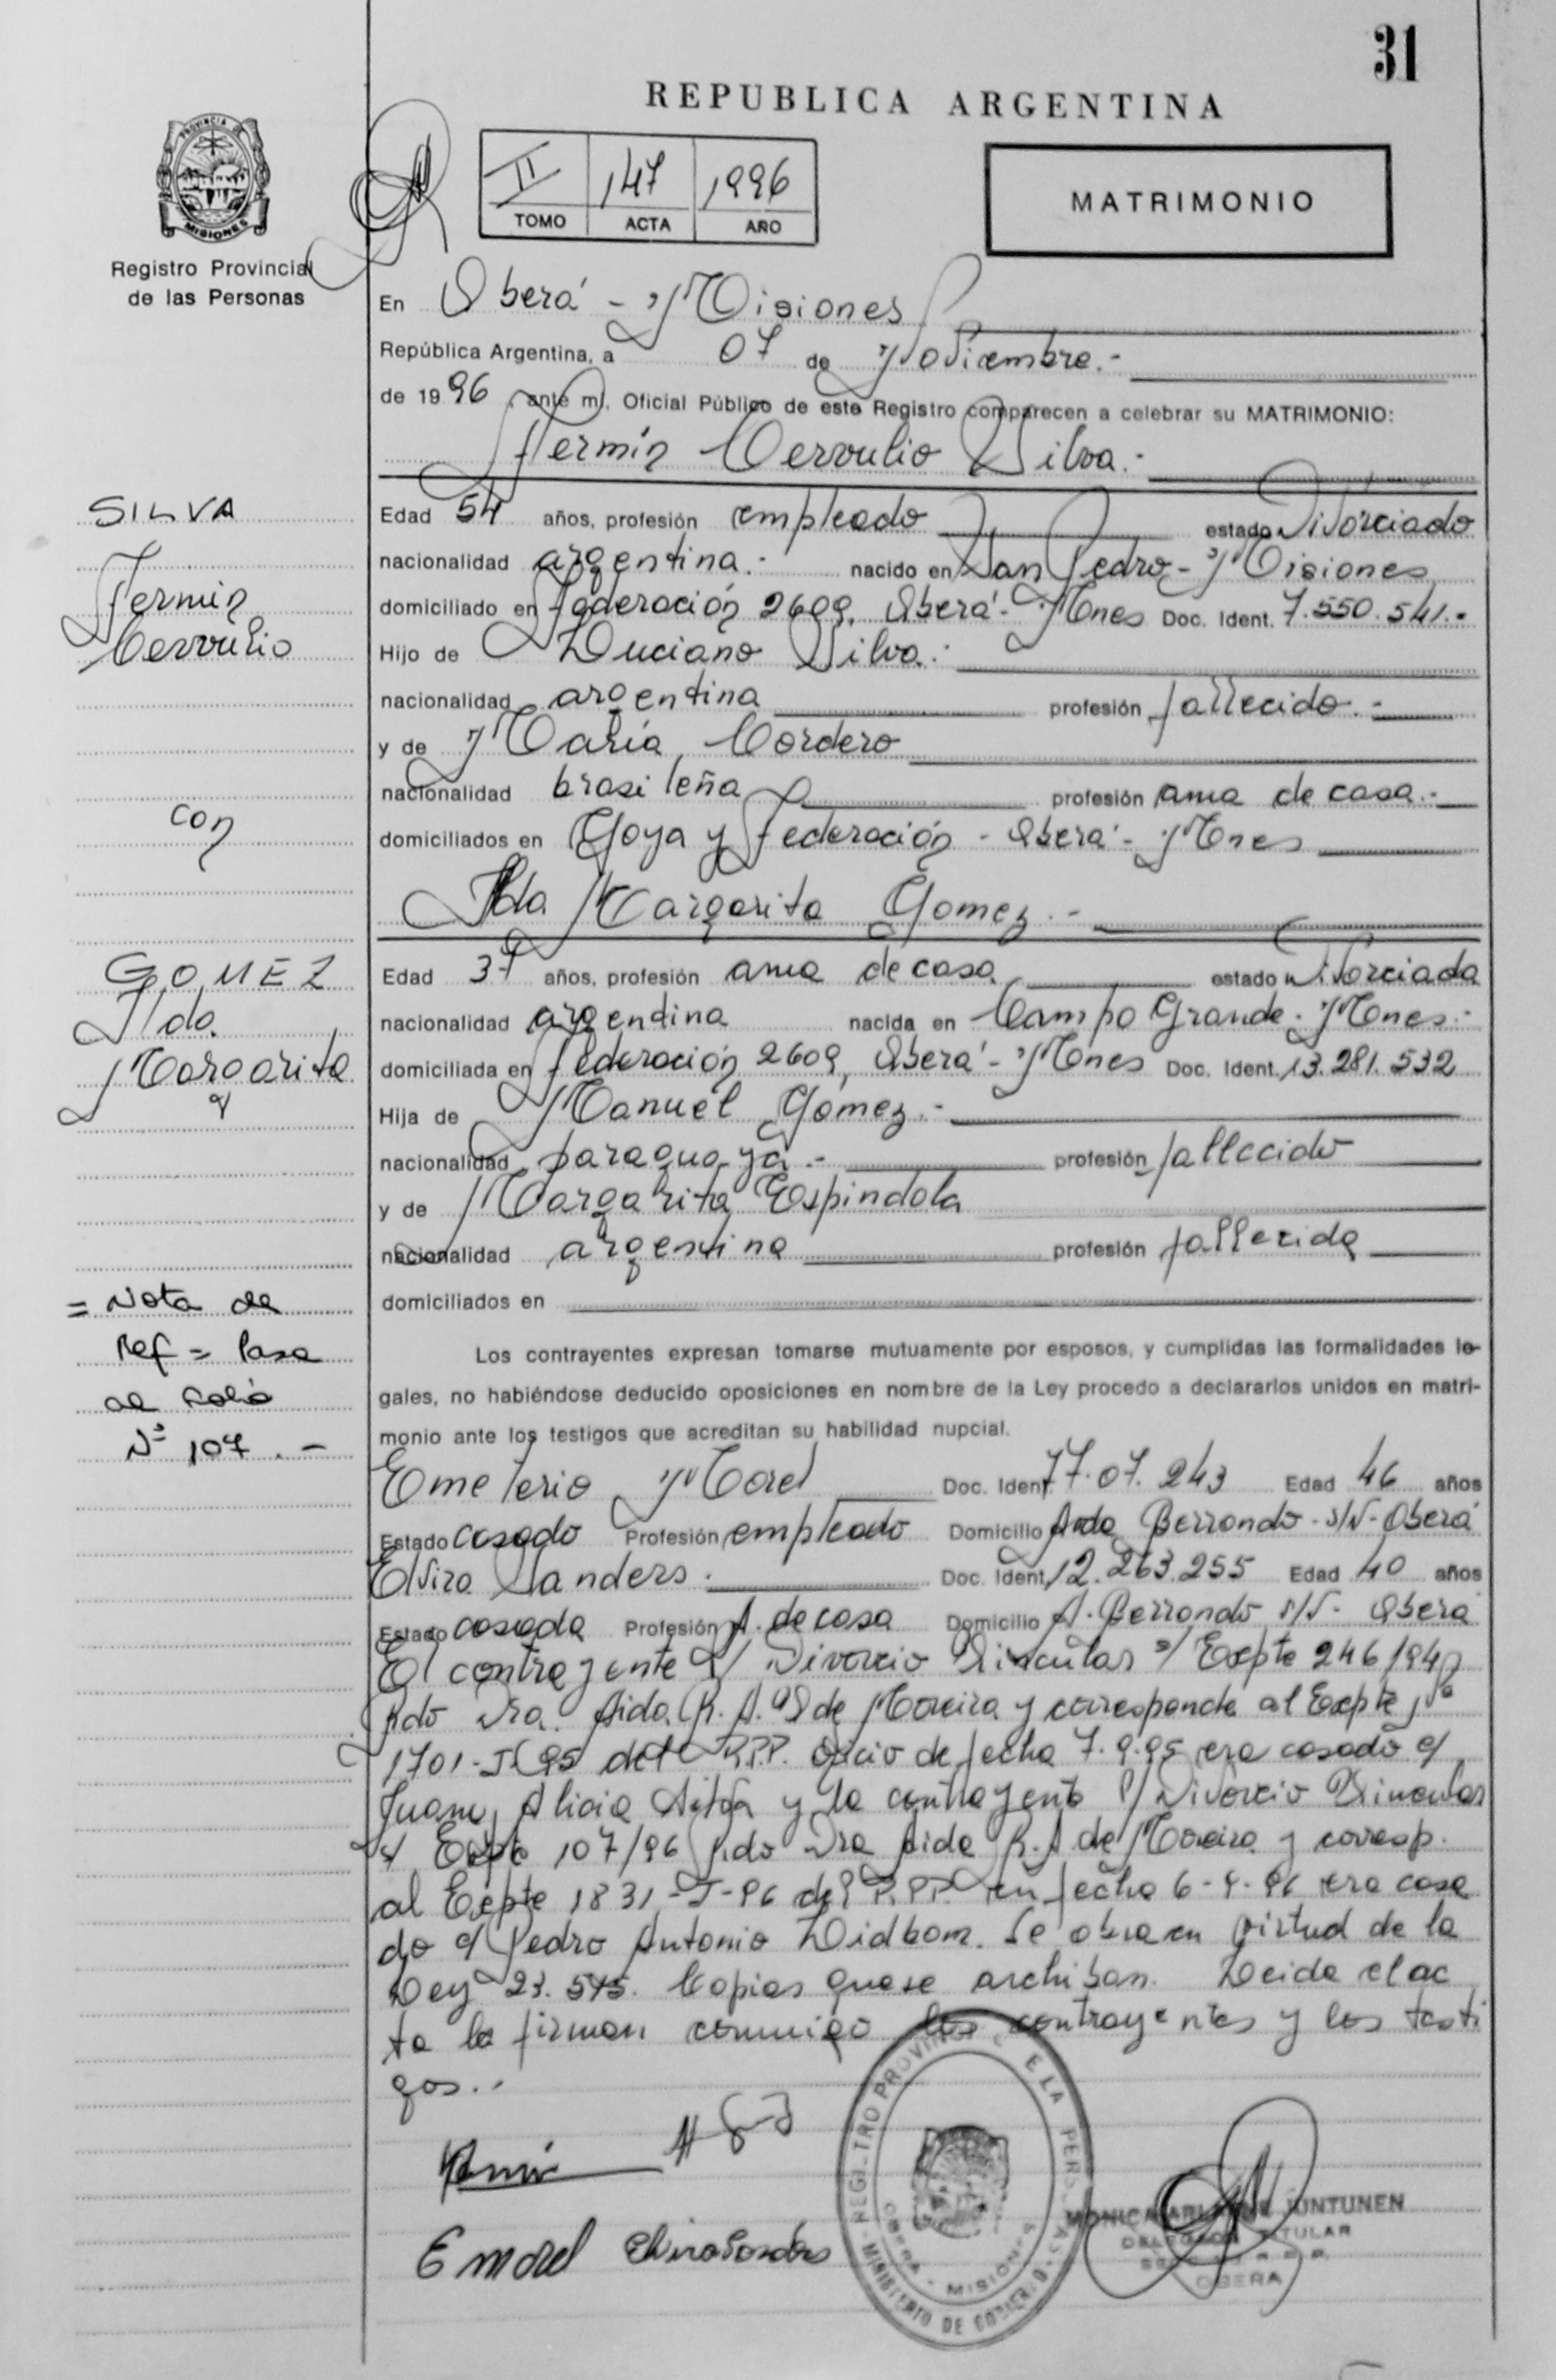 31
REPUBLICA ARGENTINA
PROVINCIA DE
MISIONES
Registro Provincial
de las Personas
II 147 1996
TOMO ACTA AÑO
MATRIMONIO
En Oberá - Misiones
República Argentina, a 07 de Noviembre.-
de 1996, ante mí, Oficial Público de este Registro comparecen a celebrar su MATRIMONIO:
Fermín Cervulio Silva.-
SILVA
Fermín
Cervulio
con
GOMEZ
Ilda
Margarita
= Nota de
Ref = Pasa
al Folio
Nº 107.-
Edad 54 años, profesión empleado estado Divorciado
nacionalidad argentina.- nacido en San Pedro - Misiones
domiciliado en Federación 2609, Oberá - Mnes Doc. Ident. 7.550.541.-
Hijo de Luciano Silva.-
nacionalidad argentina profesión fallecido.-
y de María Cordero
nacionalidad brasileña profesión ama de casa.-
domiciliados en Goya y Federación - Oberá - Mnes
Ilda Margarita Gomez.-
Edad 37 años, profesión ama de casa estado Divorciada
nacionalidad argentina nacida en Campo Grande - Mnes.-
domiciliada en Federación 2609, Oberá - Mnes Doc. Ident. 13.281.532
Hija de Manuel Gomez.-
nacionalidad paraguaya.- profesión fallecido
y de Margarita Espindola
nacionalidad argentina profesión fallecida
domiciliados en
Los contrayentes expresan tomarse mutuamente por esposos, y cumplidas las formalidades le-
gales, no habiéndose deducido oposiciones en nombre de la Ley procedo a declararlos unidos en matri-
monio ante los testigos que acreditan su habilidad nupcial.
Emeterio Morel Doc. Ident. 77.07.243 Edad 46 años
Estado casado Profesión empleado Domicilio Avda Berrondo - S/N - Oberá
Elvira Sanders.- Doc. Ident. 12.263.255 Edad 40 años
Estado casada Profesión A. de casa Domicilio A. Berrondo S/N - Oberá
El contrayente Divorcio Vincular s/ Expte 246/94
Jdo Dra. Aida R. A. de Moreira y corresponde al Expte Nº
1701-J-95 del R.P.P. Oficio de fecha 7.9.95 era casado c/
Juana Alicia y la contrayente p/ Divorcio Vincular
s/ Expte 107/96 Jdo Dra Aida R. A de Moreira y corresp.
al Expte 1831-J-96 del R.P.P. en fecha 6-9-96 era casa
da c/ Pedro Antonio Lidbom. Se obra en virtud de la
Ley 23.515. Copias que se archivan. Leida el ac
ta la firman conmigo los contrayentes y los testi
gos.-
E Morel Elvira Sanders
REGISTRO PROVINCIAL DE LA PERSONAS
MINISTERIO DE GOBIERNO
OBERA - MISIONES
MONICA JUNTUNEN
DELEGADA TITULAR
OBERA